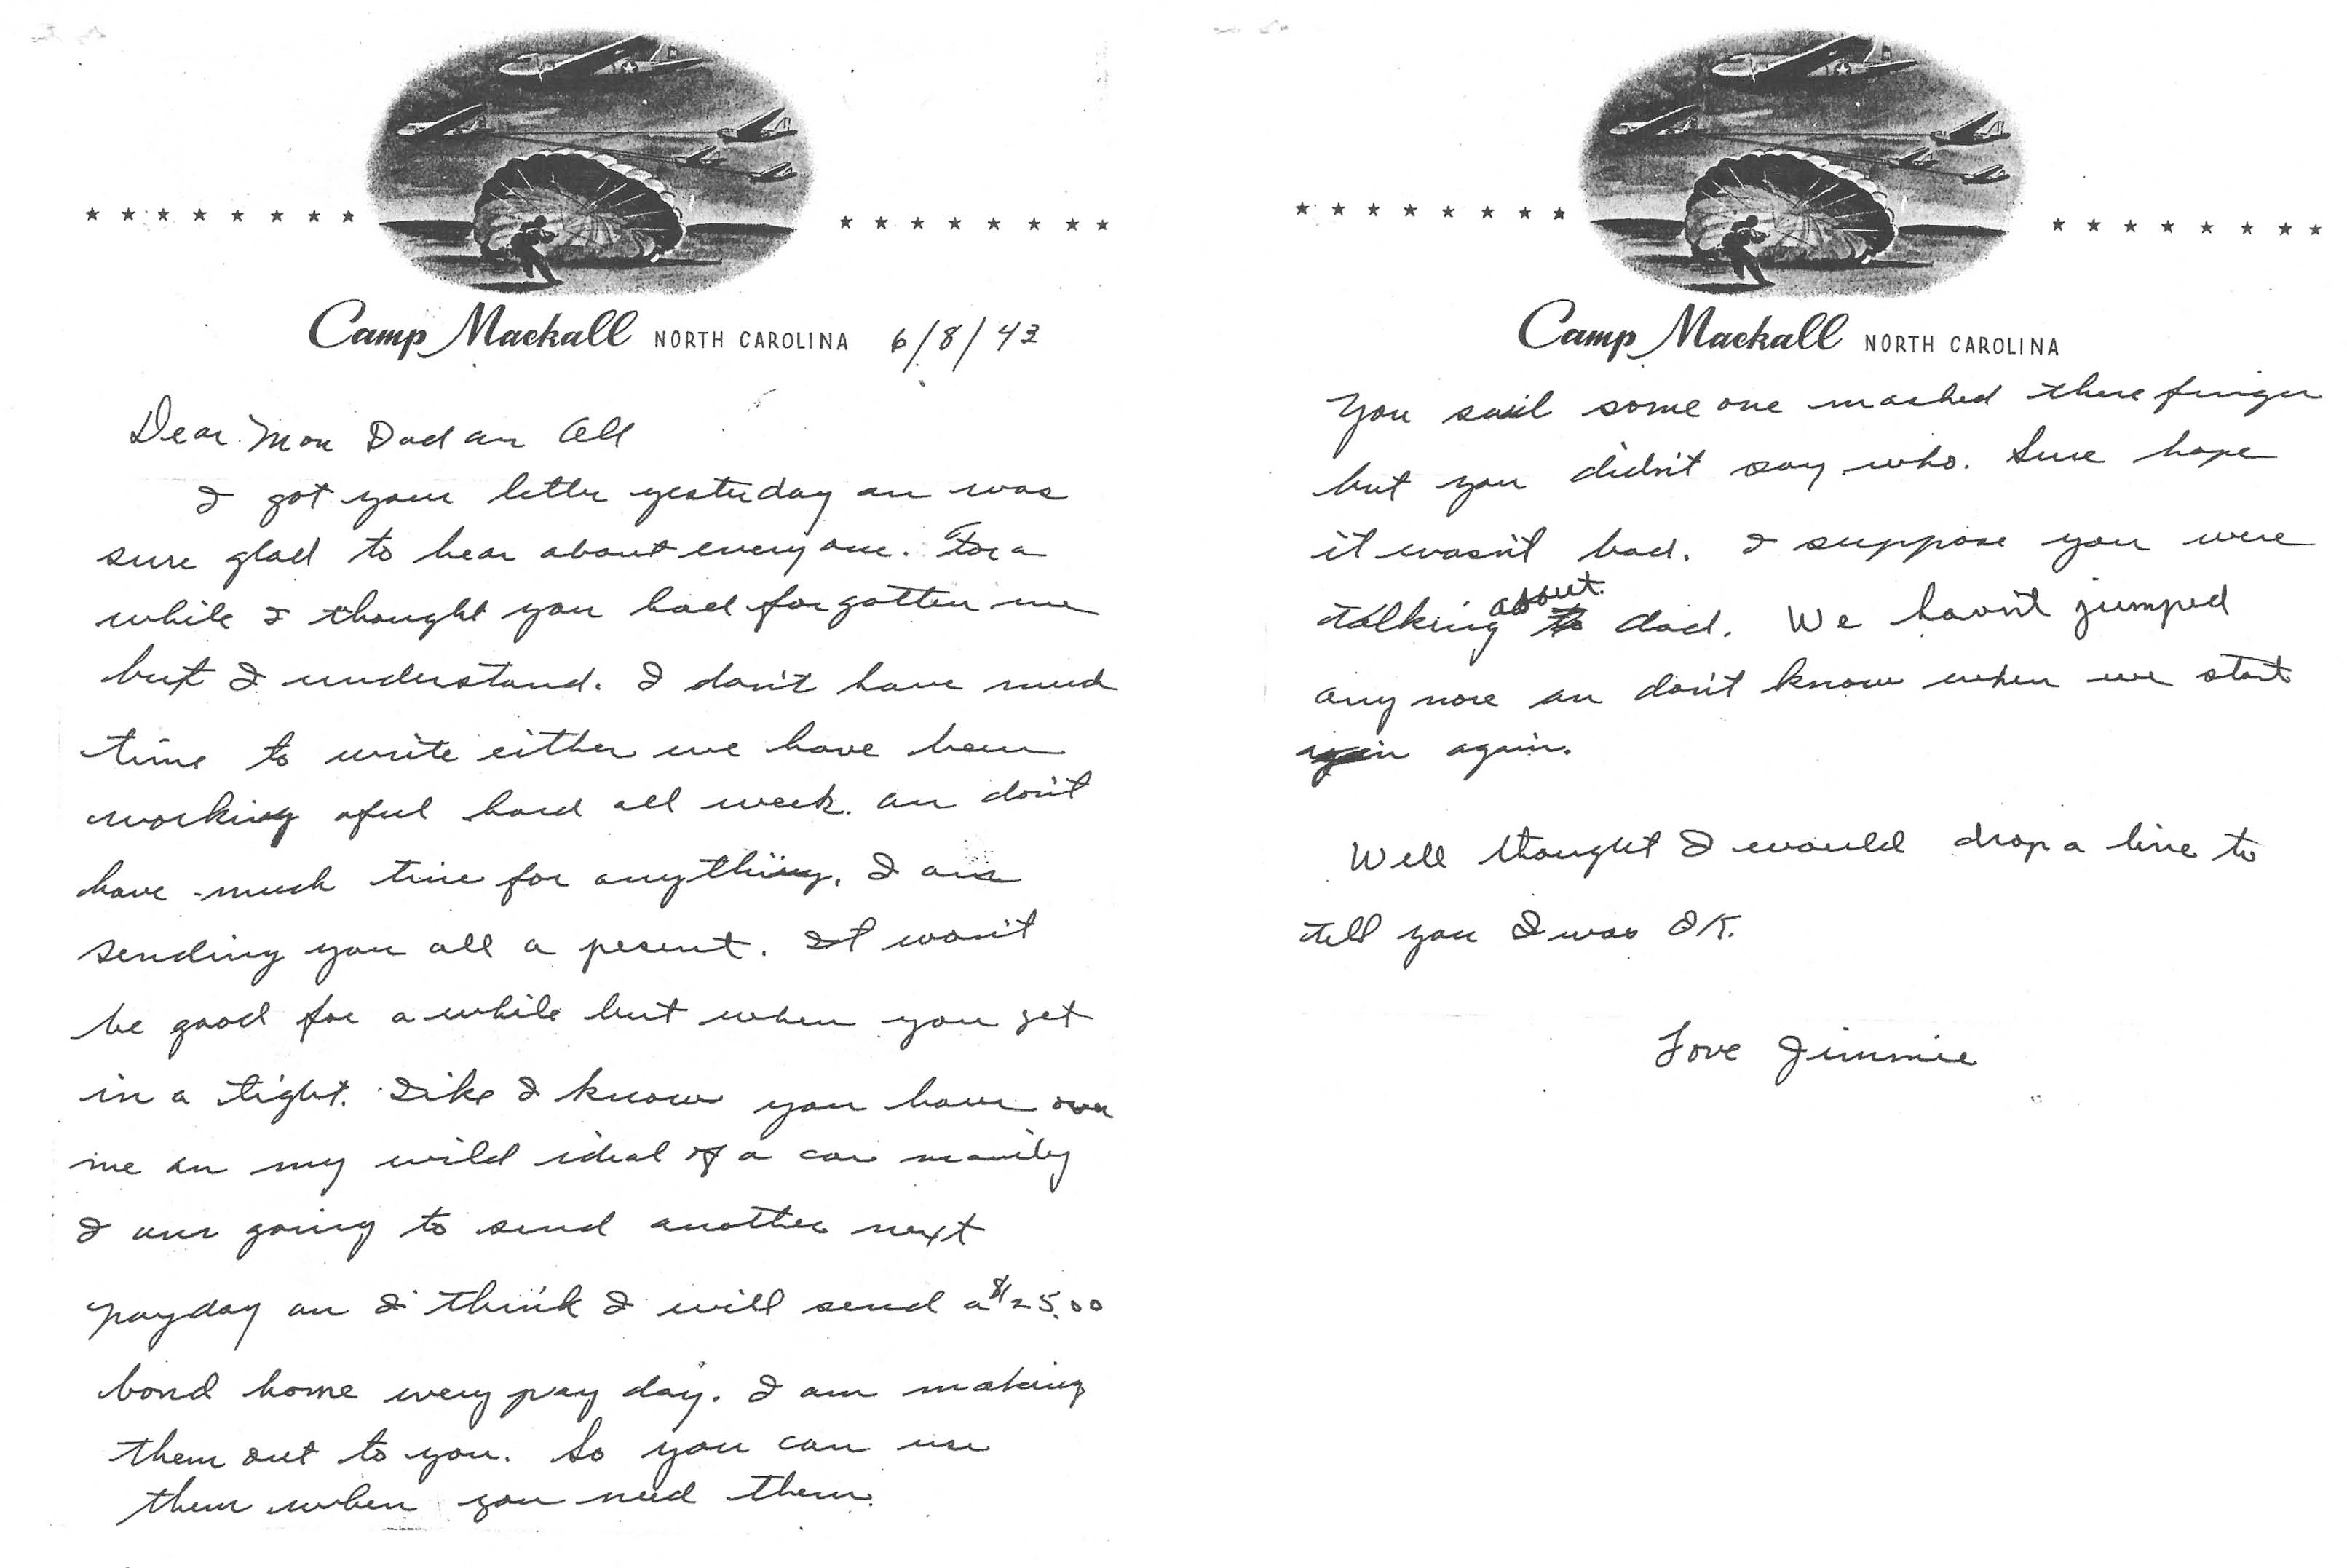 Camp Mackall NORTH CAROLINA 6/8/43
Dear Mom Dad an All
I got your letter yesterday an was
sure glad to hear about everyone. For a
while I thought you had forgotten me
but I understand. I don't have much
time to write either we have been
working aful hard all week. an don't
have much time for anything. I am
sending you all a pesent. It won't
be good for a while but when you get
in a tight. Like I know you have over
me an my wild ideal of a car mainly
I am going to send another next
payday an I think I will send a $25.00
bond home every pay day. I am making
them out to you. So you can use
them when you need them.
Camp Mackall NORTH CAROLINA
You said some one mashed there finger
but you didn't say who. Sure hope
it wasn't bad. I suppose you were
talking about to dad. We havn't jumped
any more an don't know when we start
again again.
Well thought I would drop a line to
tell you I was OK.
Love Jimmie